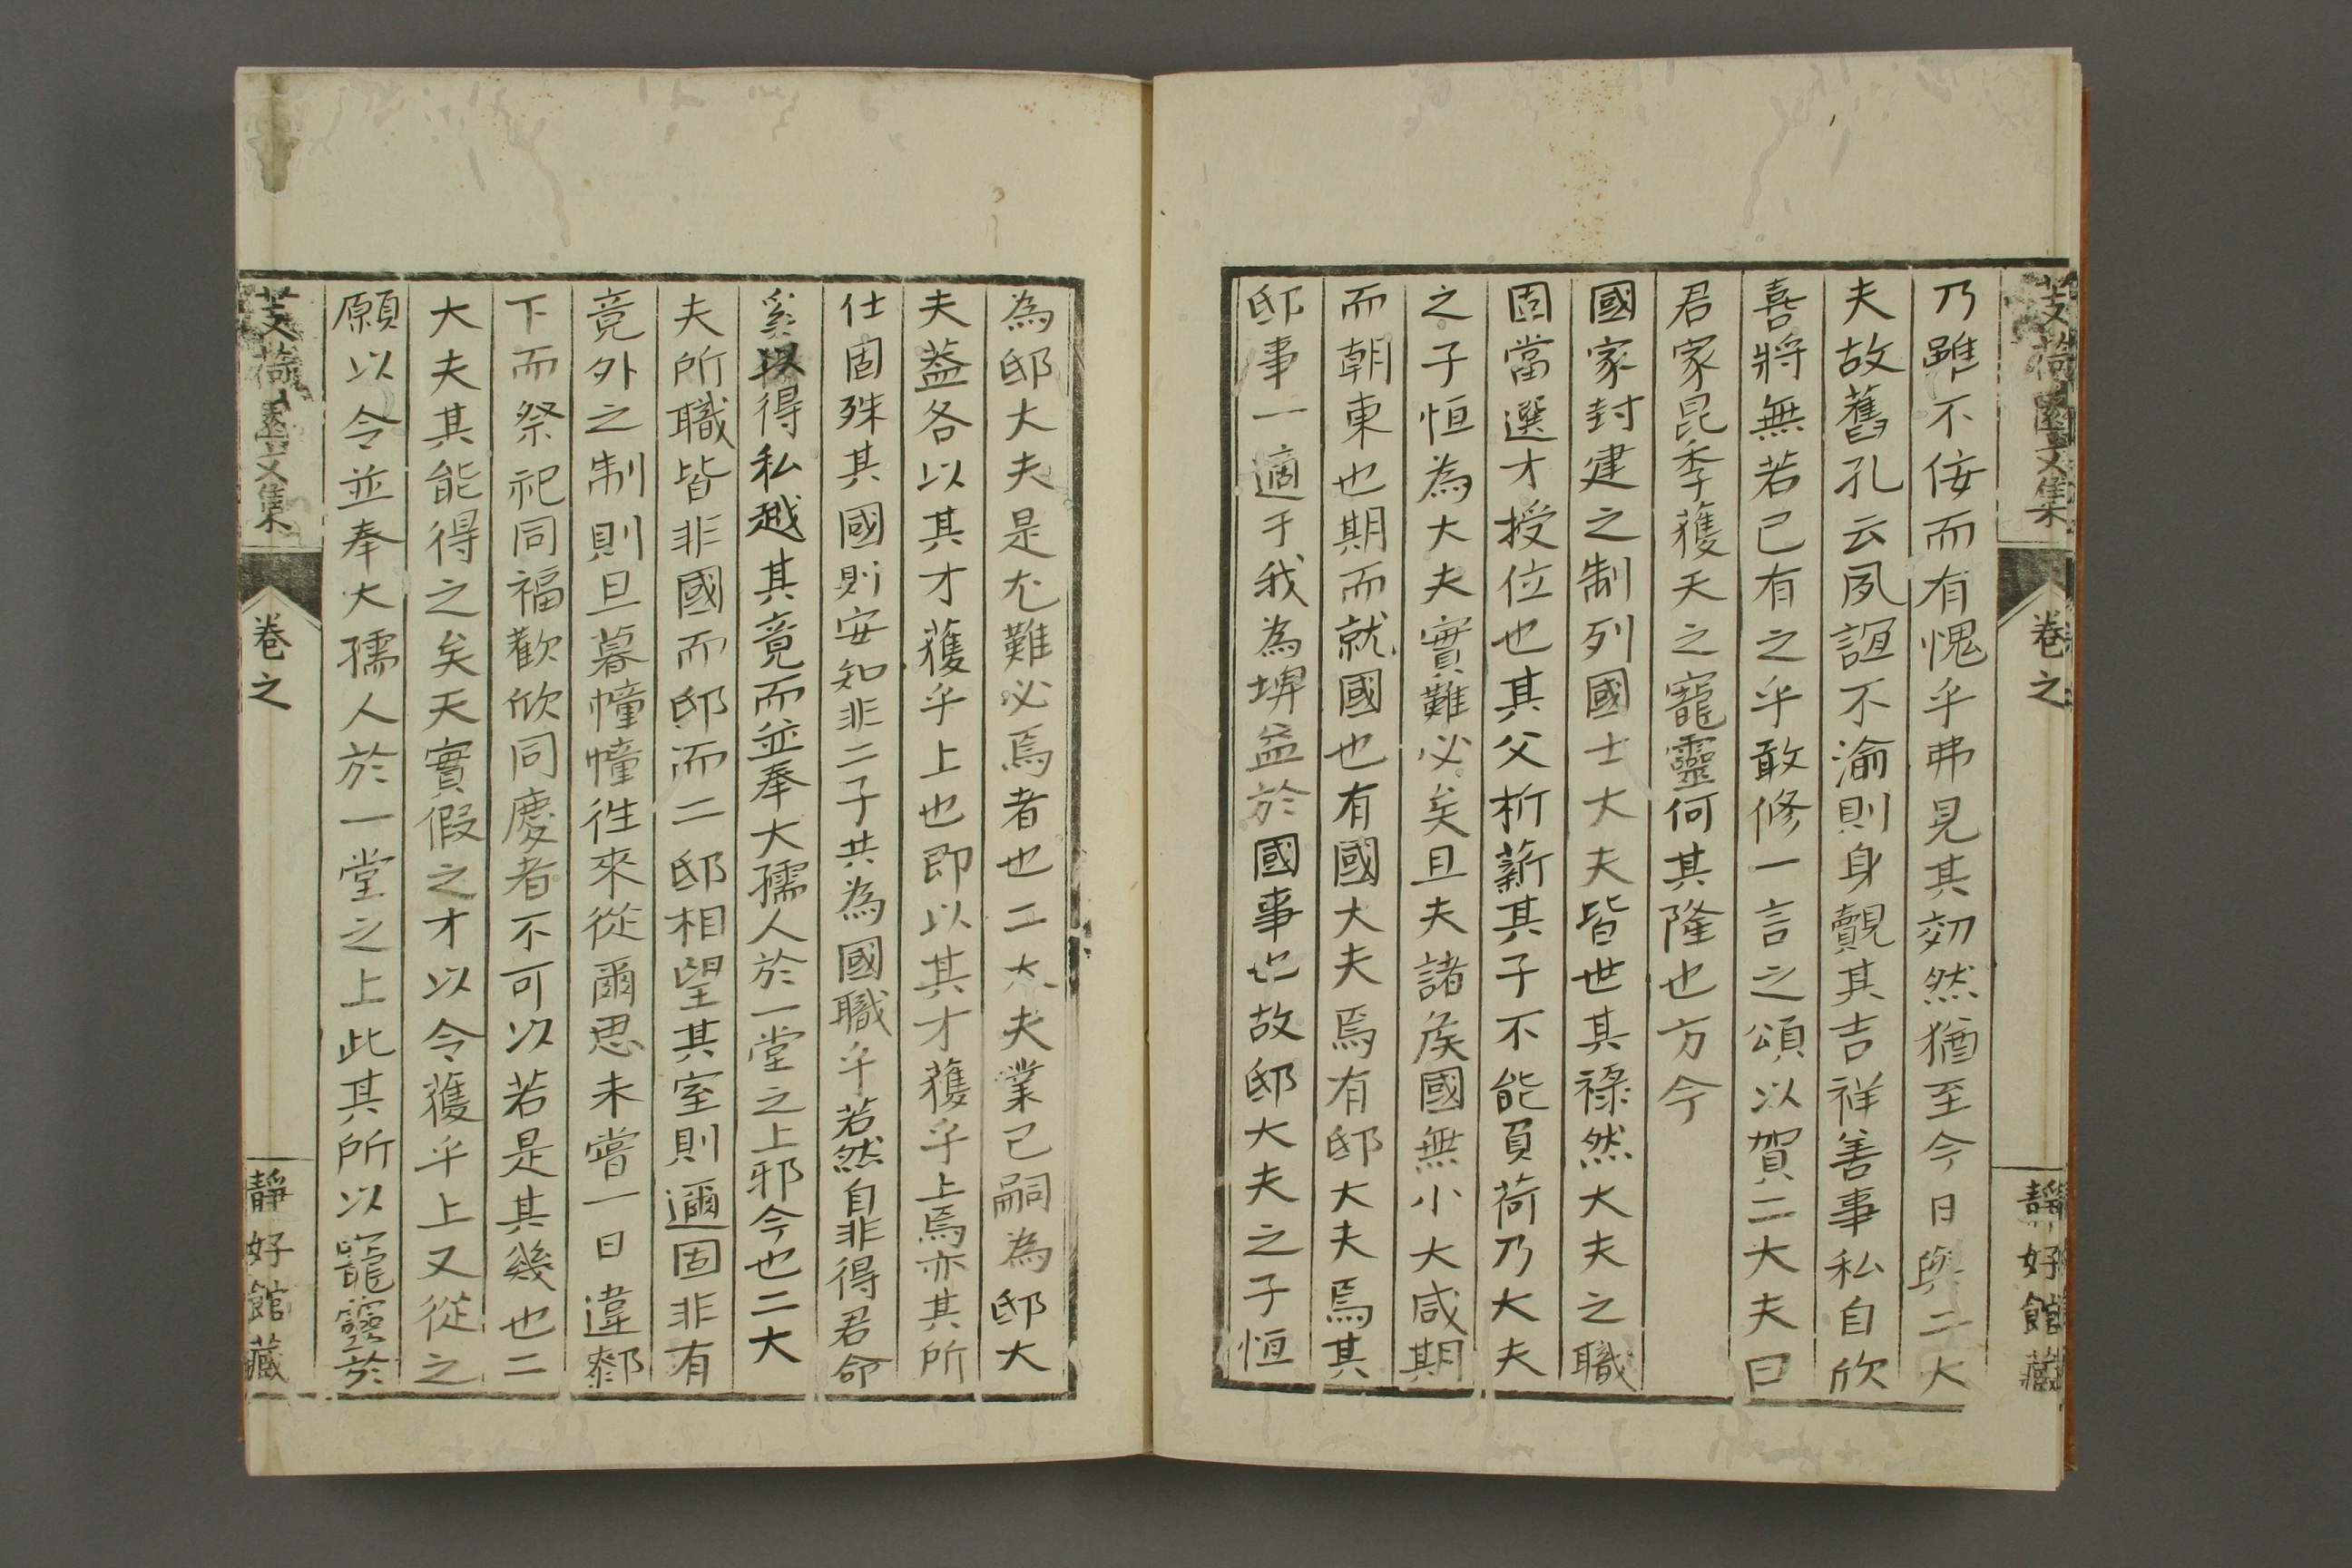 芰荷園文集
卷之
靜好館藏
乃雖不侫而有愧乎弗見其効然猶至今日與二大
夫故舊孔云夙誼不渝則身覿其吉祥善事私自欣
喜將無若已有之乎敢修一言之頌以賀二大夫曰
君家昆季獲天之寵靈何其隆也方今
國家封建之制列國士大夫皆世其祿然大夫之職
固當選才授位也其父析薪其子不能負荷乃大夫
之子恒為大夫實難必矣且夫諸侯國無小大咸期
而朝東也期而就國也有國大夫焉有邸大夫焉其
邸事一適于我為埤益於國事也故邸大夫之子恒
為邸大夫是尤難必焉者也二大夫業已嗣為邸大
夫蓋各以其才獲乎上也即以其才獲乎上焉亦其所
仕固殊其國則安知非二子共為國職乎若然自非得君命
奚以得私越其竟而並奉大孺人於一堂之上邪今也二大
夫所職皆非國而邸而二邸相望其室則邇固非有
竟外之制則旦暮幢幢徃來從爾思未嘗一日違鄰
下而祭祀同福歡欣同慶者不可以若是其幾也二
大夫其能得之矣天實假之才以令獲乎上又從之
願以令並奉大孺人於一堂之上此其所以寵靈於
芰荷園文集
卷之
靜好館藏